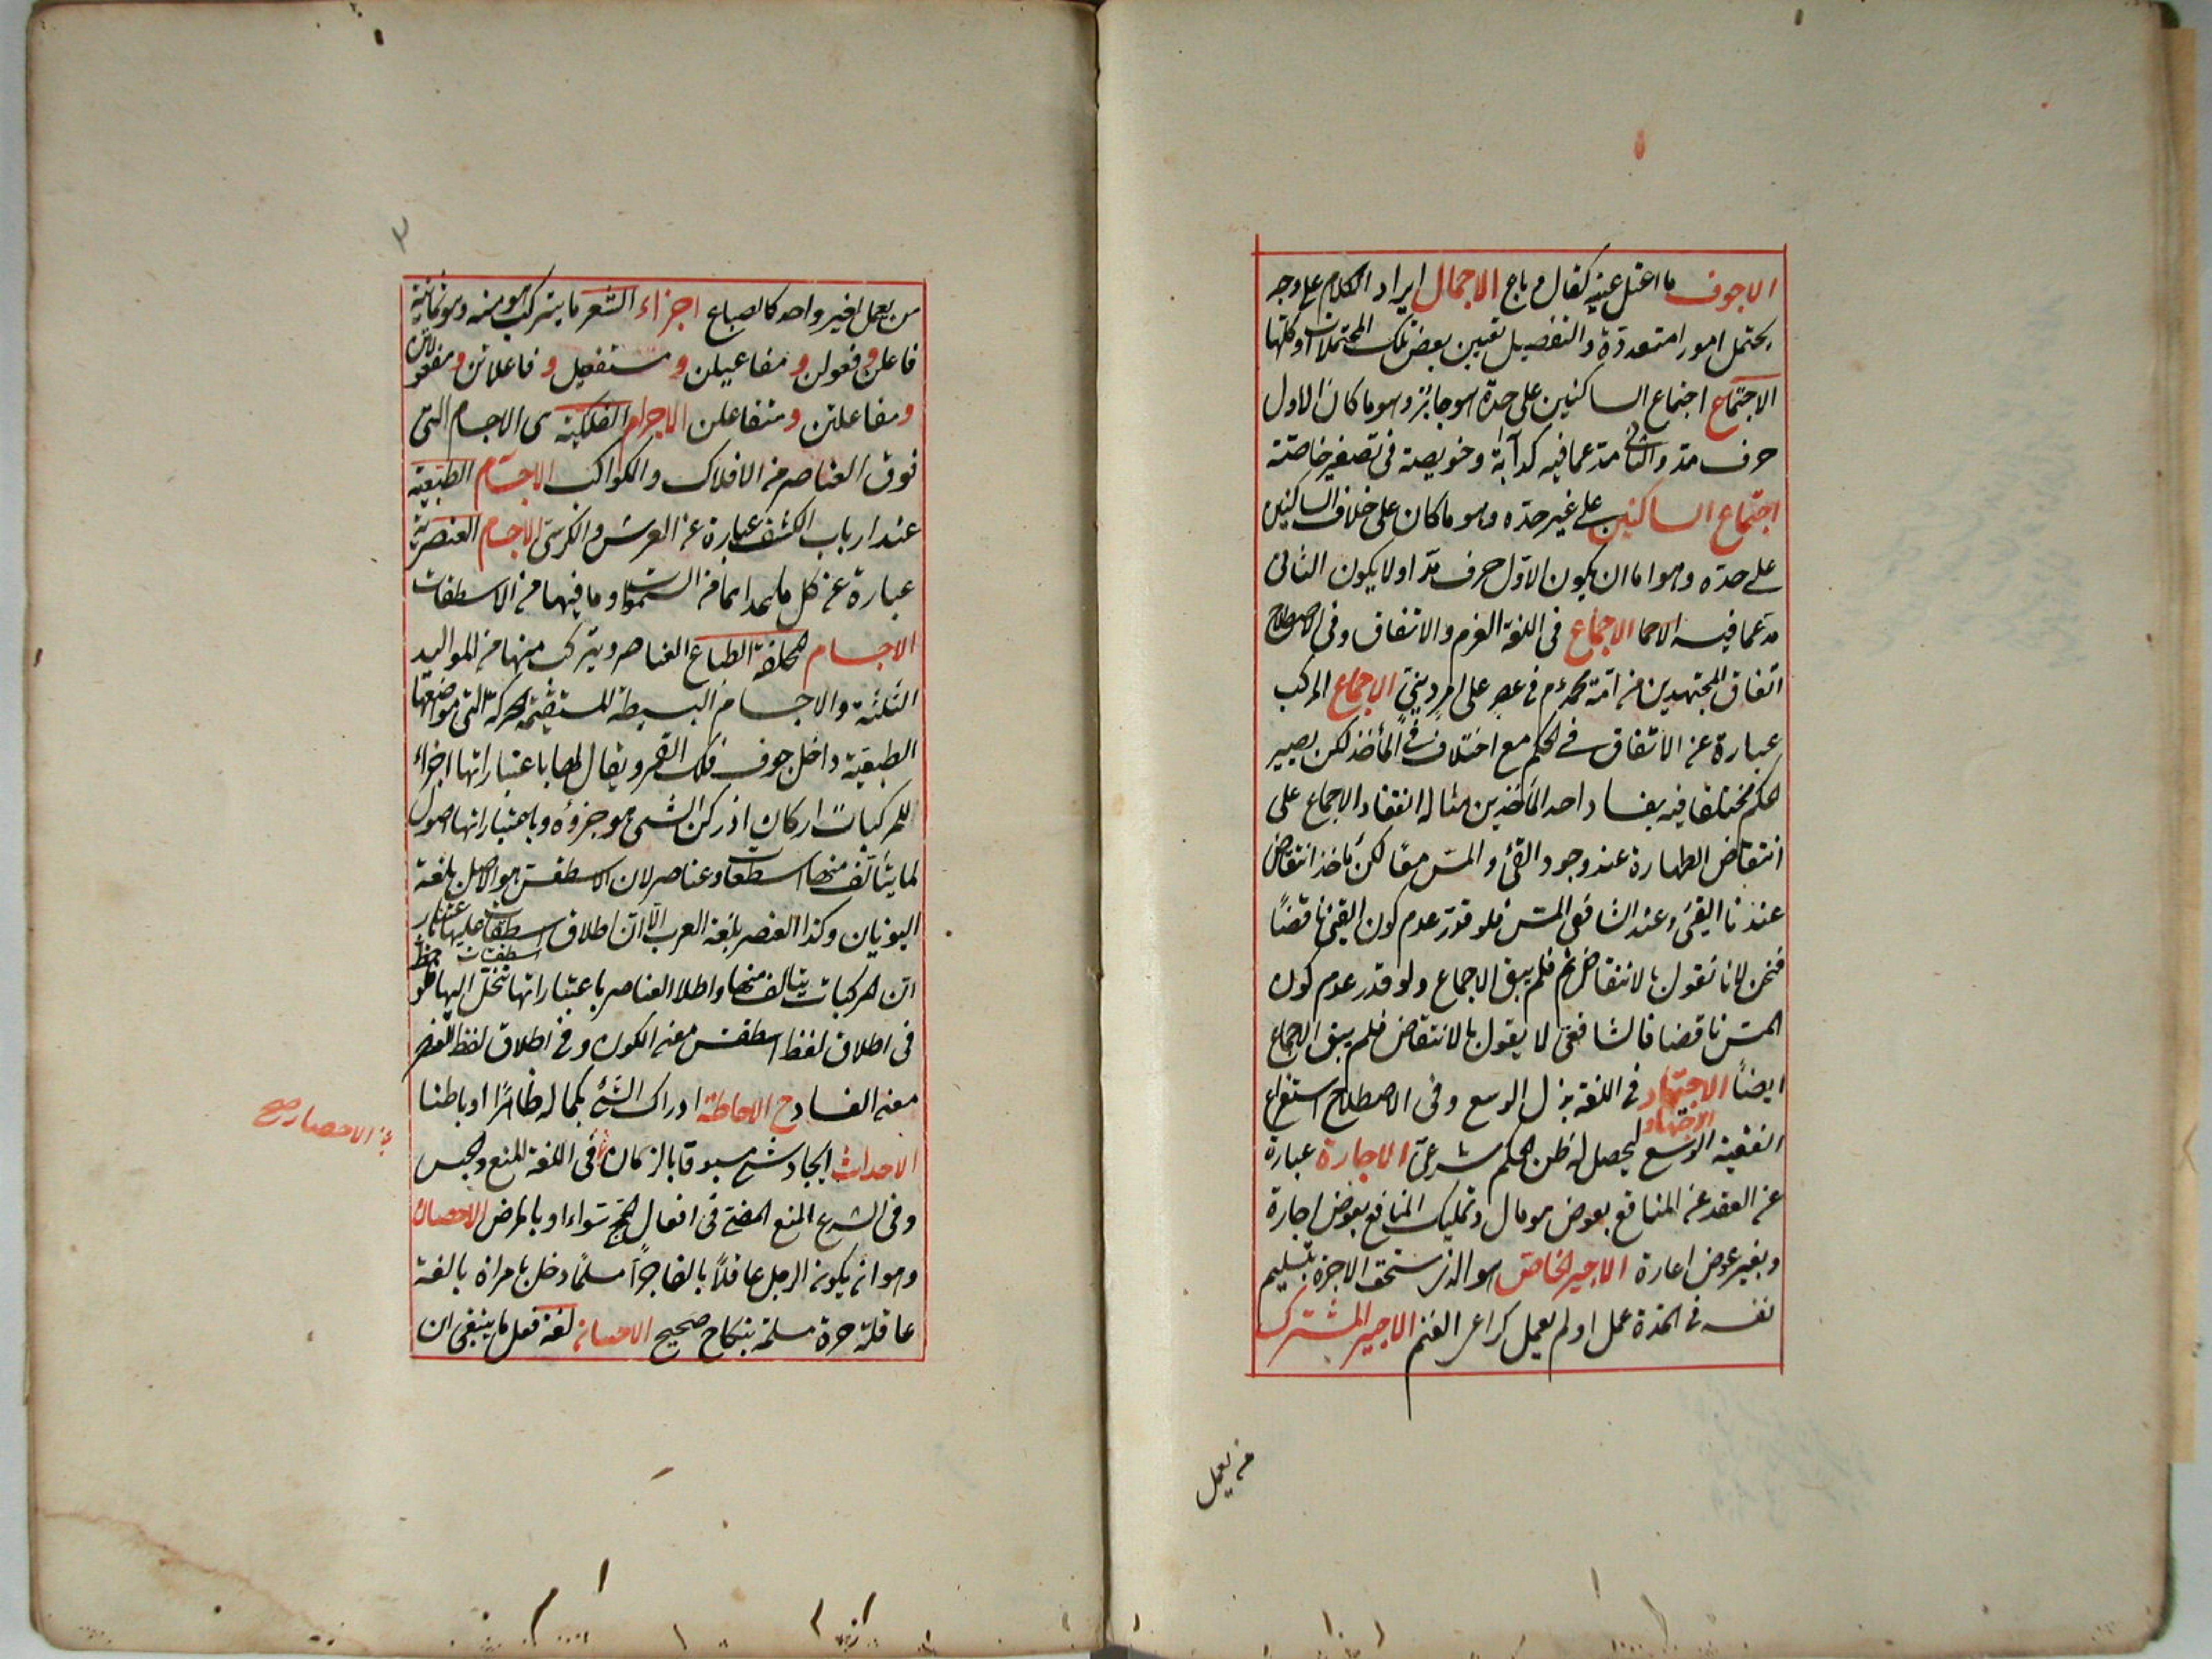 الاجوف ما اعتل عينه كقال وباع الاجمال ايراد الكلام على وجه
يحتمل امورا متعددة والتفصيل تعيين بعض تلك المحتملات او كلها
الاجتماع اجتماع الساكنين على حدة هو جائز وهو ما كان الاول
حرف مد والثانى مدغما فيه كدآبة وخويصة فى تصغير خاصة
اجتماع الساكنين على غير حده وهو ما كان على خلاف الساكنين
على حده وهو اما ان يكون الاول حرف مد او لا يكون الثانى
مدغما فيه الاجماع فى اللغة العزم والاتفاق وفى الاصطلاح
اتفاق المجتهدين من امة محمد عم فى عصر على امر دينى الاجماع المركب
عبارة عن الاتفاق فى الحكم مع اختلاف فى المأخذ لكن يصير
الحكم مختلفا فيه بفساد احد المأخذين مثاله انعقاد الاجماع على
انتقاض الطهارة عند وجود القئ والمس معًا لكن مأخذ انتقاض
عندنا القئ وعند الشافعى المس فلو قدر عدم كون القئ ناقضًا
فنحن لا نقول بالانتقاض ثم فلم يبق الاجماع ولو قدر عدم كون
المس ناقضا فالشافعى لا يقول بالانتقاض فلم يبق الاجماع
ايضًا الاجتهاد فى اللغة بذل الوسع وفى الاصطلاح استفراغ
الاجتهاد
الفقيه الوسع ليحصل له ظن بحكم شرعى الاجارة عبارة
عن العقد على المنافع بعوض هو مال وتمليك المنافع بعوض اجارة
وبغير عوض اعارة الاجير الخاص هو الذى يستحق الاجرة بتسليم
نفسه فى المدة عمل او لم يعمل كراعى الغنم الاجير المشترك
من يعمل
٣
من يعمل لغير واحد كالصباغ اجزاء الشعر ما يتركب هو منه وهو ثمانية
فاعلن وفعولن ومفاعيلن ومستفعلن وفاعلاتن ومفعولات
ومفاعلتن ومتفاعلن الاجرام الفلكية هى الاجسام التى
فوق العناصر من الافلاك والكواكب الاجسام الطبيعية
عند ارباب الكشف عبارة عن العرش والكرسى الاجسام العنصرية
عبارة عن كل ما عداهما من السموات وما فيها من الاسطقسات
الاجسام المختلفة الطباع العناصر ويتركب منها من المواليد
الثلثة والاجسام البسيطة المستقيمة الحركة التى مواضعها
الطبيعية داخل جوف فلك القمر ويقال لها باعتبار انها اجزاء
للمركبات اركان اذ ركن الشئ هو جزؤه وباعتبار انها اصول
لما يتألف منها اسطقسات وعناصر لان الاسطقس هو الاصل بلغة
اليونان وكذا العنصر بلغة العرب الا ان اطلاق اسطقسات عليها باعتبار
ان المركبات يتالف منها واطلاق العناصر باعتبار انها تنحل اليها فلوحظ
فى اطلاق لفظ اسطقس معنى الكون وفى اطلاق لفظ العنصر
معنى الفساد ح الاحاطة ادراك الشئ بكماله ظاهرًا او باطنا
الاحداث ايجاد شئ مسبوقا بالزمان فى اللغة المنع والحبس
الاحصار صح
وفى الشرع المنع المضى فى افعال الحج سواء او بالمرض الاحصان
وهو ان يكون الرجل عاقلًا بالغا حرًا مسلمًا دخل بامراة بالغة
عاقلة حرة مسلمة بنكاح صحيح الاحسان لغة فعل ما ينبغى ان